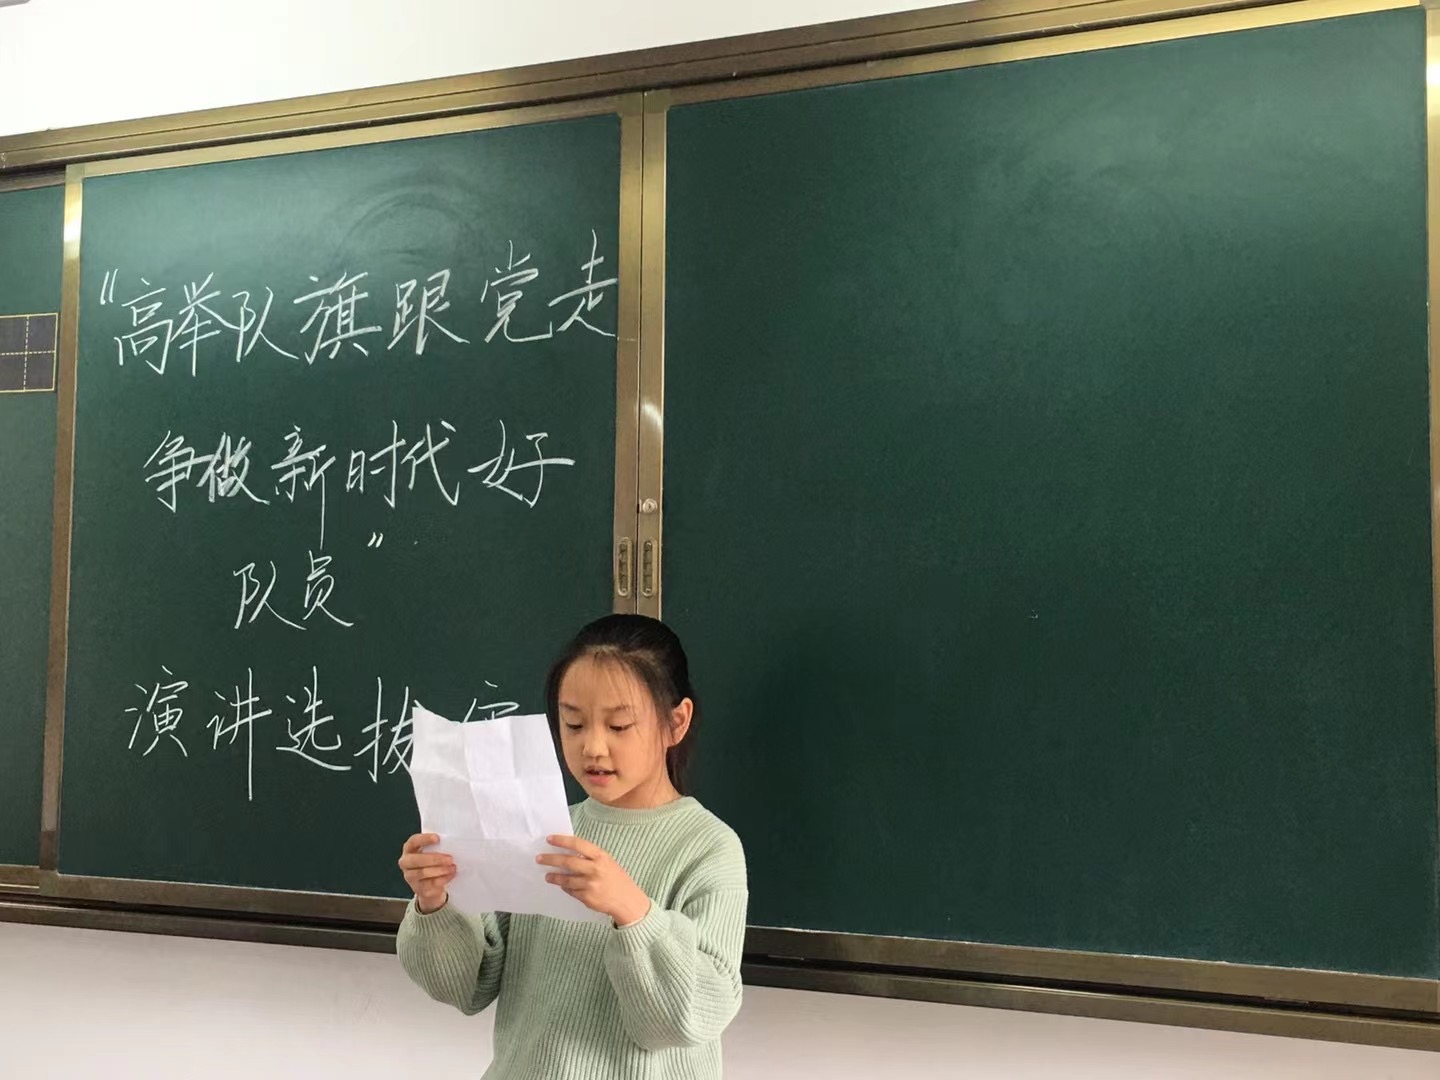 “高举队旗跟党走
争做新时代好
队员”
演讲选拔